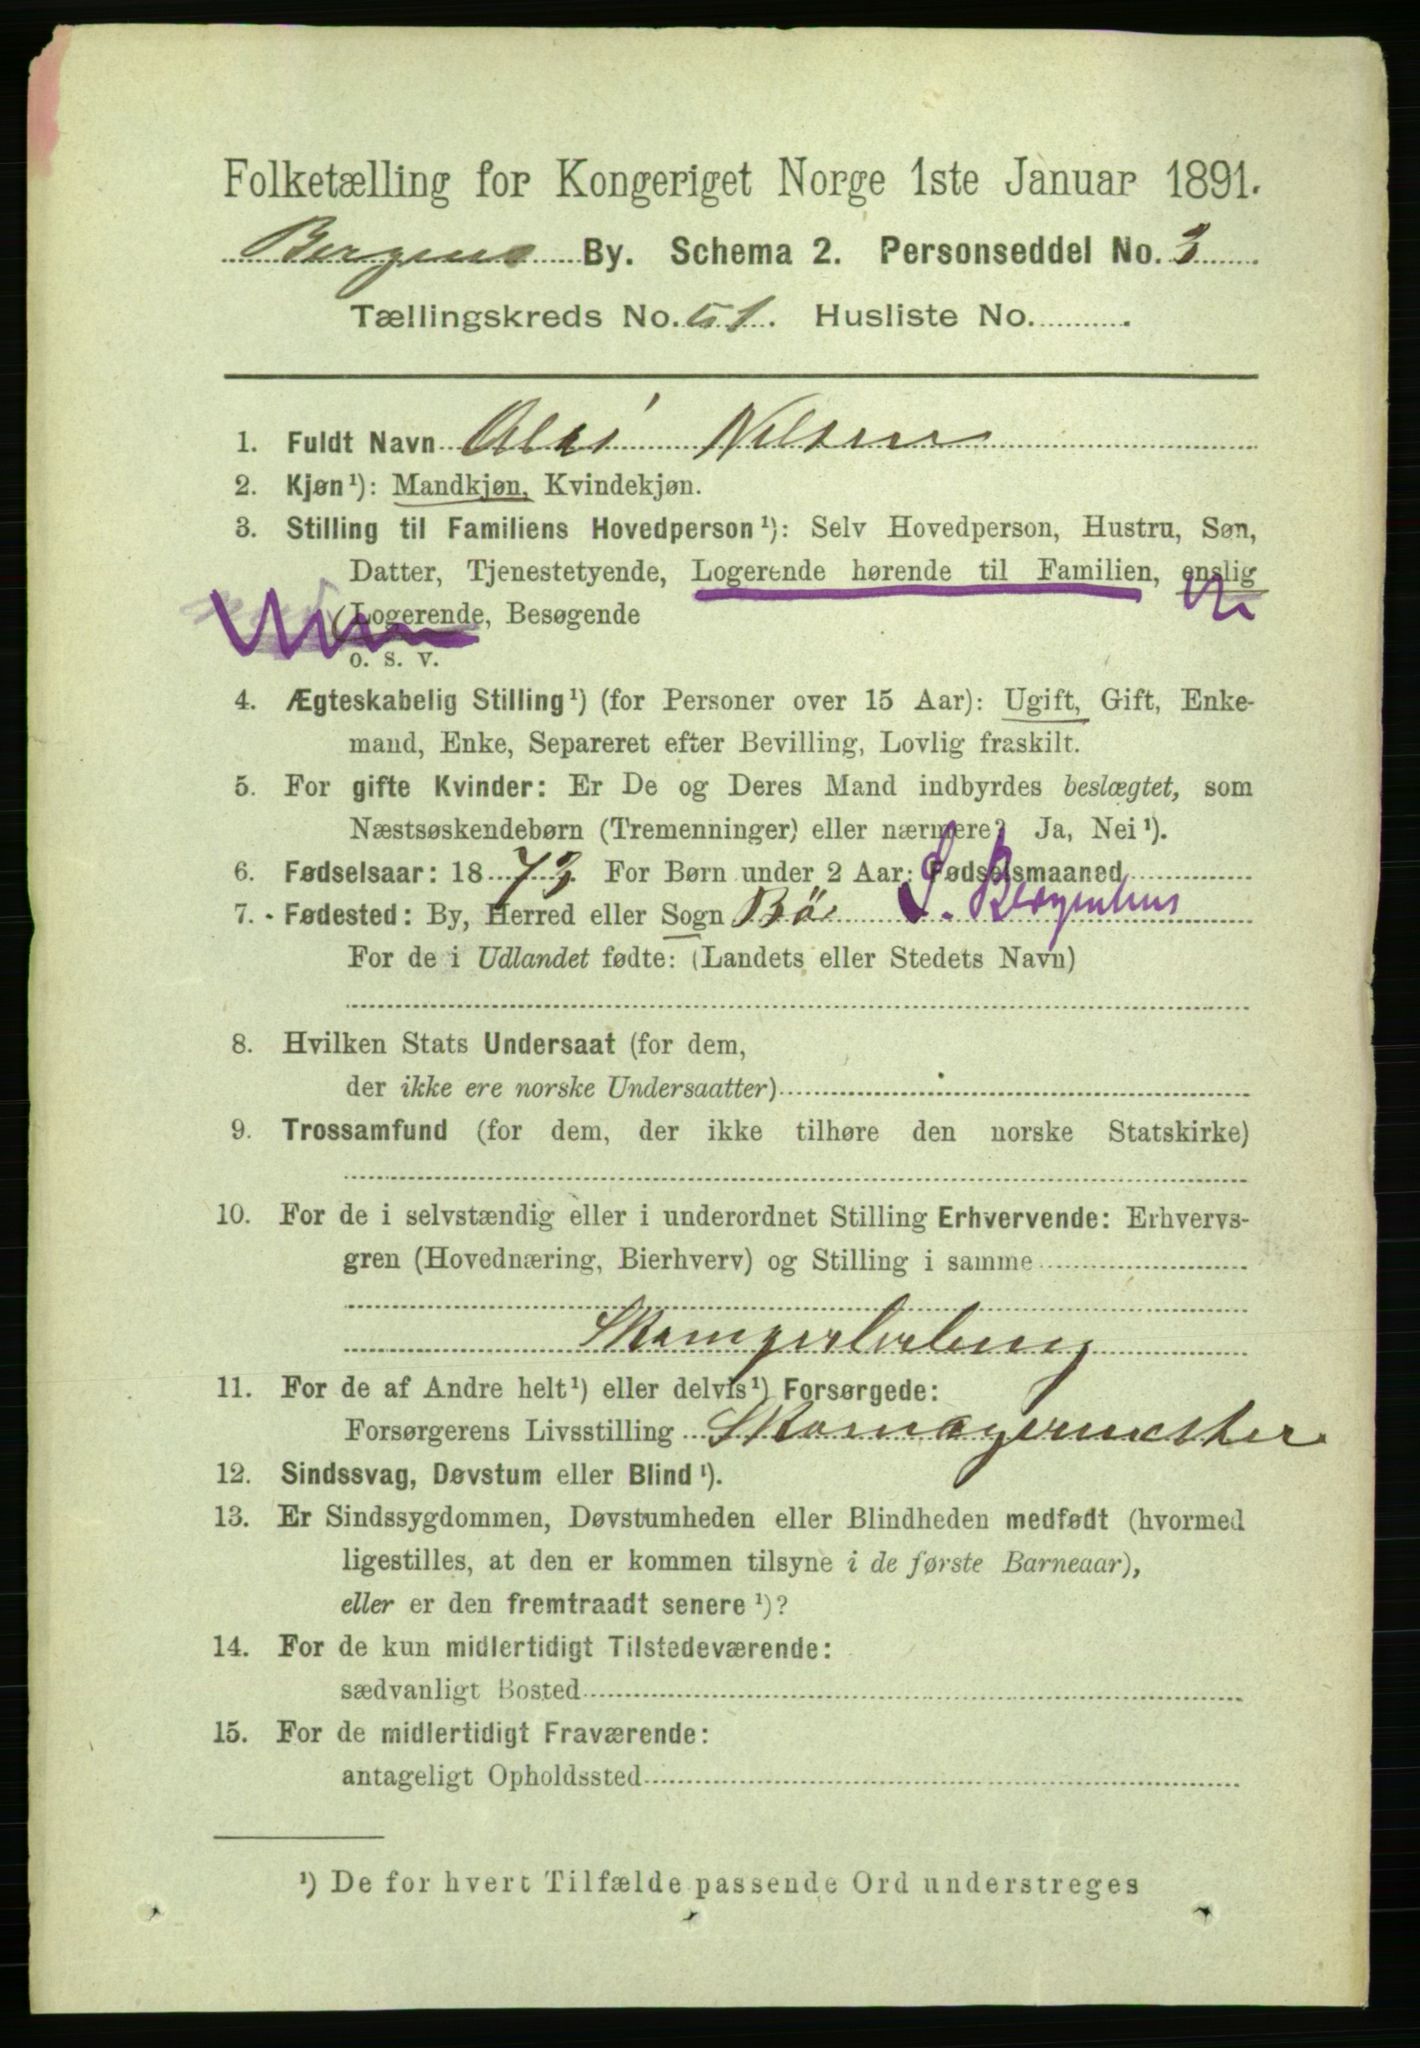 Folketælling for Kongeriget Norge 1ste Januar 1891.
Bergens By. Schema 2. Personseddel No. 3
Tællingskreds No. 51. Husliste No.
1. Fuldt Navn Nilsen
2. Kjøn¹): Mandkjøn, Kvindekjøn.
3. Stilling til Familiens Hovedperson¹): Selv Hovedperson, Hustru, Søn,
Datter, Tjenestetyende, Logerende hørende til Familien, enslig
(Logerende, Besøgende
o. s. v.
4. Ægteskabelig Stilling¹) (for Personer over 15 Aar): Ugift, Gift, Enke-
mand, Enke, Separeret efter Bevilling, Lovlig fraskilt.
5. For gifte Kvinder: Er De og Deres Mand indbyrdes beslægtet, som
Næstsøskendebørn (Tremenninger) eller nærmere? Ja, Nei¹).
6. Fødselsaar: 1873. For Børn under 2 Aar: Fødselsmaaned
7. Fødested: By, Herred eller Sogn Bö S. Bergenhus
For de i Udlandet fødte: (Landets eller Stedets Navn)
8. Hvilken Stats Undersaat (for dem,
der ikke ere norske Undersaatter)
9. Trossamfund (for dem, der ikke tilhøre den norske Statskirke)
10. For de i selvstændig eller i underordnet Stilling Erhvervende: Erhvervs-
gren (Hovednæring, Bierhverv) og Stilling i samme
11. For de af Andre helt¹) eller delvis¹) Forsørgede:
Forsørgerens Livsstilling Skomagermester
12. Sindssvag, Døvstum eller Blind¹).
13. Er Sindssygdommen, Døvstumheden eller Blindheden medfødt (hvormed
ligestilles, at den er kommen tilsyne i de første Barneaar),
eller er den fremtraadt senere¹)?
14. For de kun midlertidigt Tilstedeværende:
sædvanligt Bosted
15. For de midlertidigt Fraværende:
antageligt Opholdssted
¹) De for hvert Tilfælde passende Ord understreges